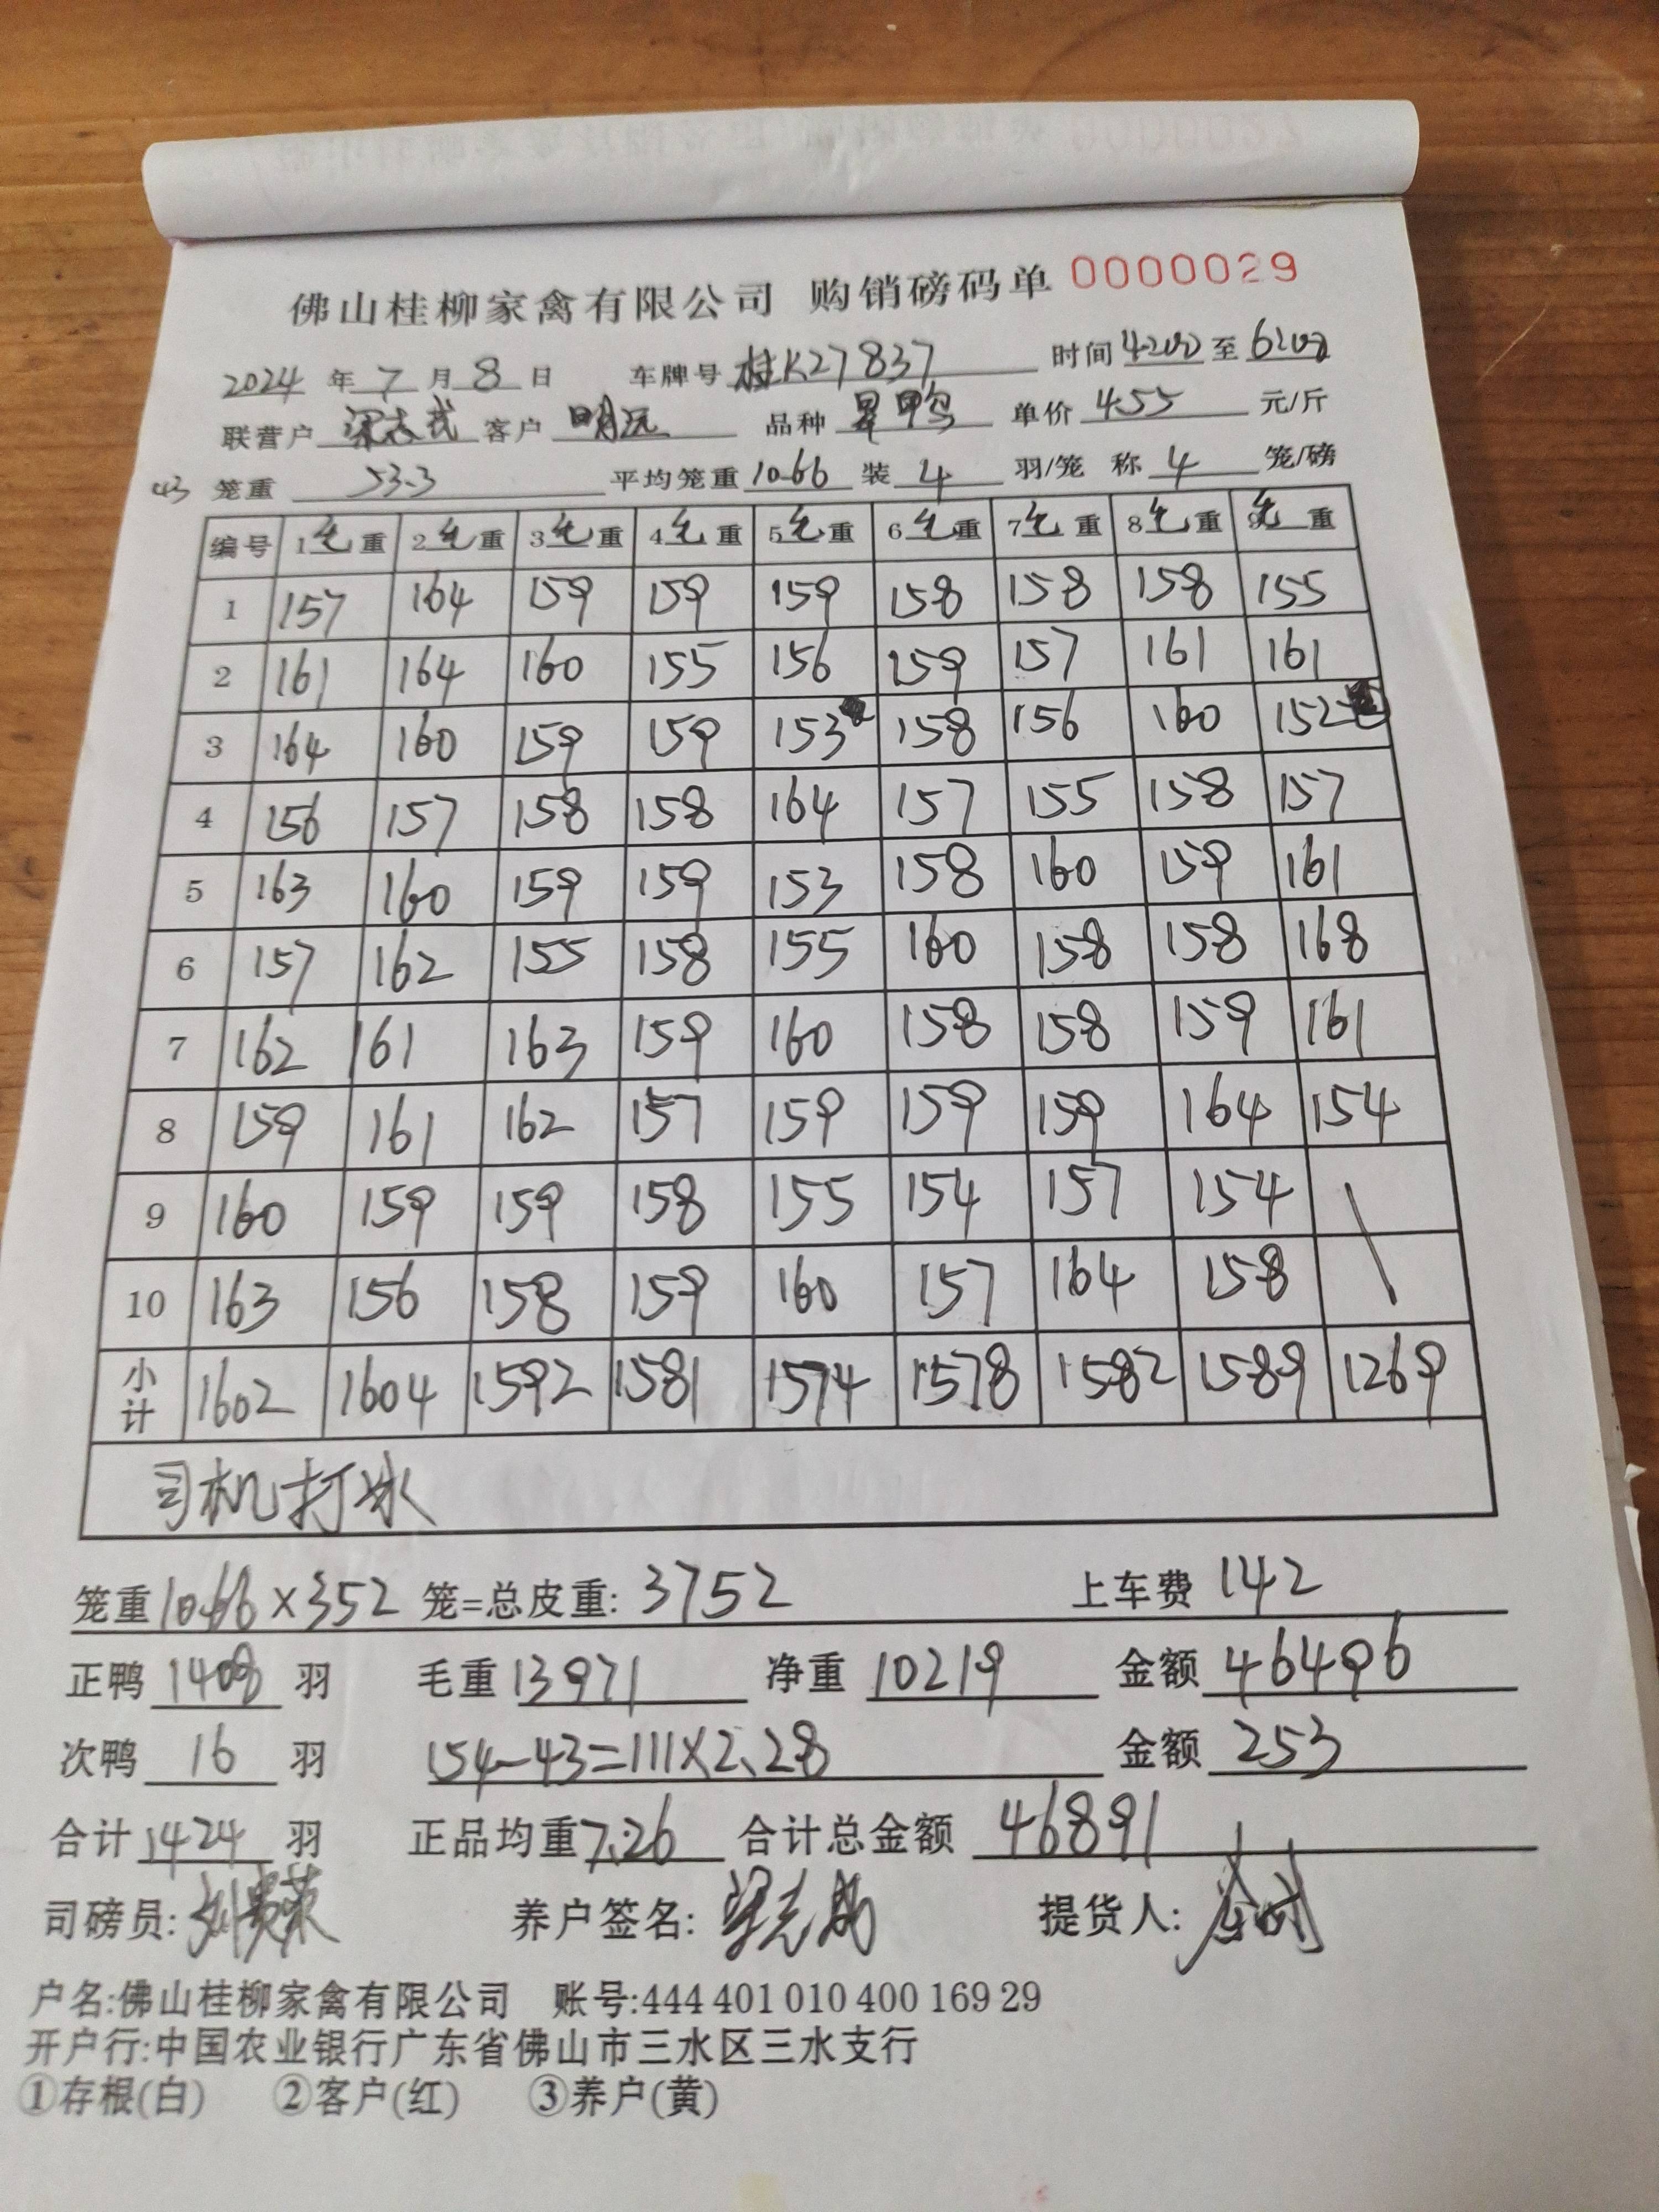 佛山桂柳家禽有限公司 购销磅码单 0000029
2024 年 7 月 8 日 车牌号 桂K27837 时间 4:00 至 6:00
联营户 梁志武 客户 明远 品种 单价 4.55 元/斤
43 笼重 53.3 平均笼重 10.66 装 4 羽/笼 称 4 笼/磅
编号 1毛重 2毛重 3毛重 4毛重 5毛重 6毛重 7毛重 8毛重 9毛重
1 157 164 159 159 159 158 158 158 155
2 161 164 160 155 156 159 157 161 161
3 164 160 159 159 153 158 156 160 152
4 156 157 158 158 164 157 155 158 157
5 163 160 159 159 153 158 160 159 161
6 157 162 155 158 155 160 158 158 168
7 162 161 163 159 160 158 158 159 161
8 159 161 162 157 159 159 159 164 154
9 160 159 159 158 155 154 157 154
10 163 156 158 159 160 157 164 158
小计 1602 1604 1592 1581 1574 1578 1582 1589 1269
司机打冰
笼重 10.66 × 352 笼=总皮重: 3752 上车费 142
正鸭 1408 羽 毛重 13971 净重 10219 金额 46496
次鸭 16 羽 154-43=111×2.28 金额 253
合计 1424 羽 正品均重 7.26 合计总金额 46891
司磅员: 养户签名: 提货人:
户名:佛山桂柳家禽有限公司 账号:444 401 010 400 169 29
开户行:中国农业银行广东省佛山市三水区三水支行
①存根(白) ②客户(红) ③养户(黄)